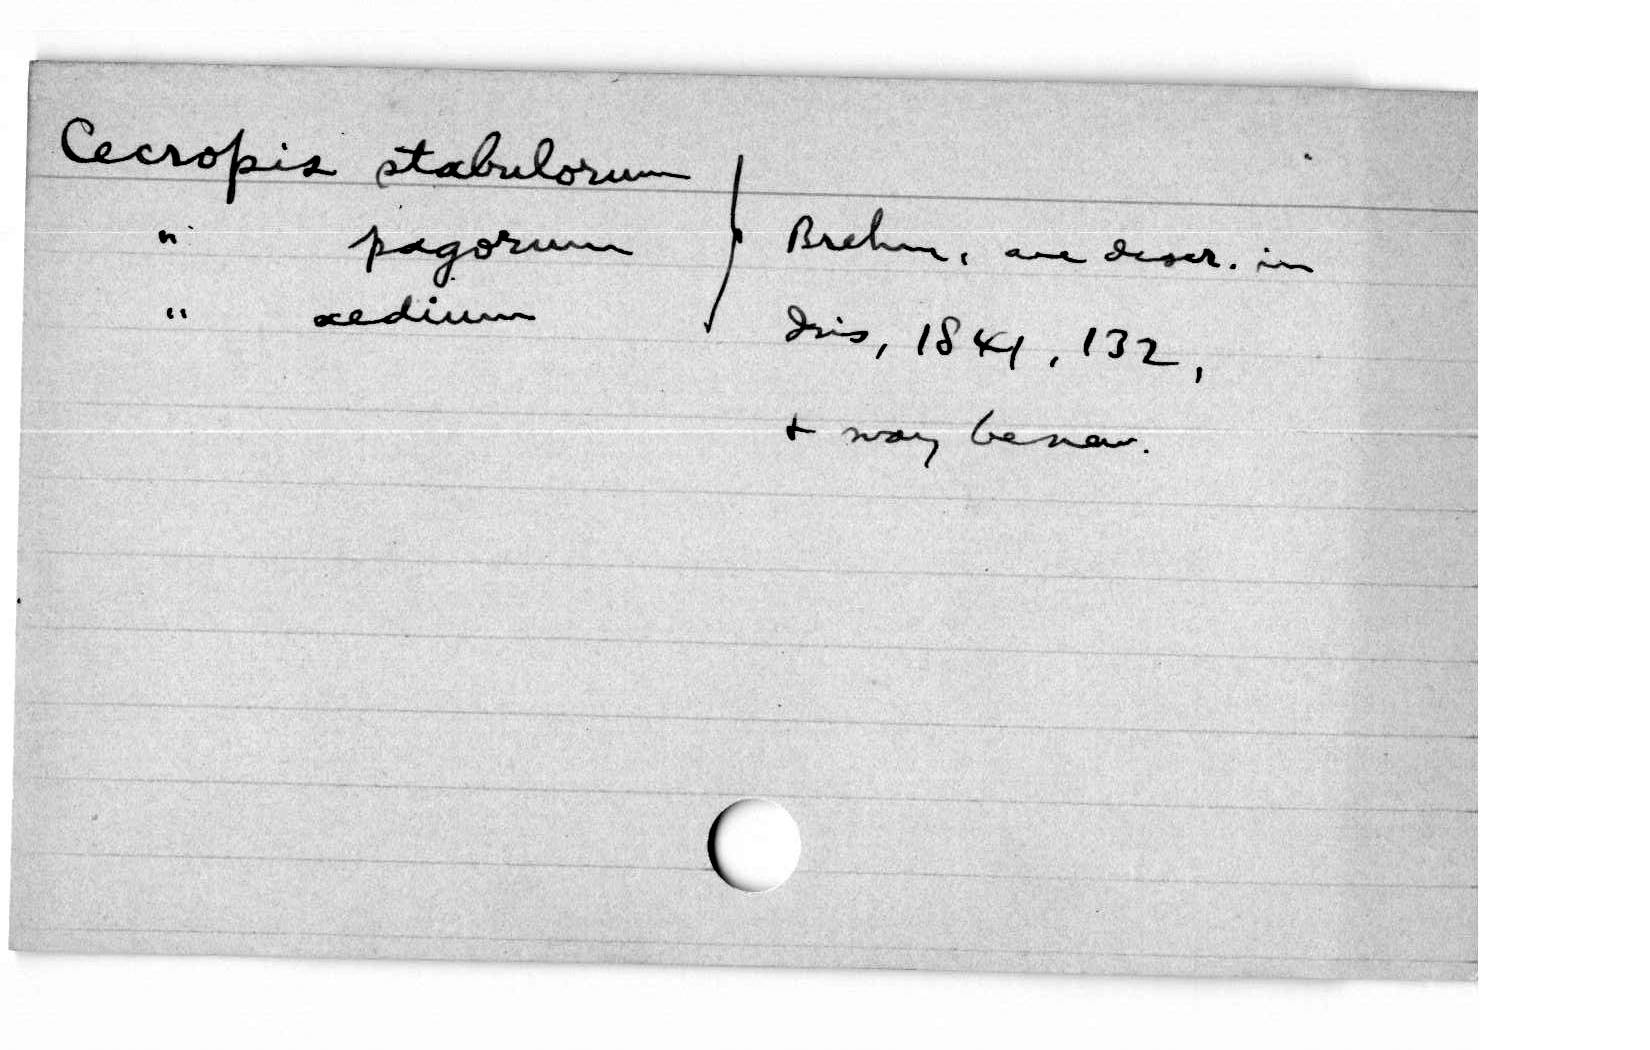 Cecropis stabulorum
" pagorum
" aedium
Brehm, are descr. in
Isis, 1841, 132,
+ may be new.